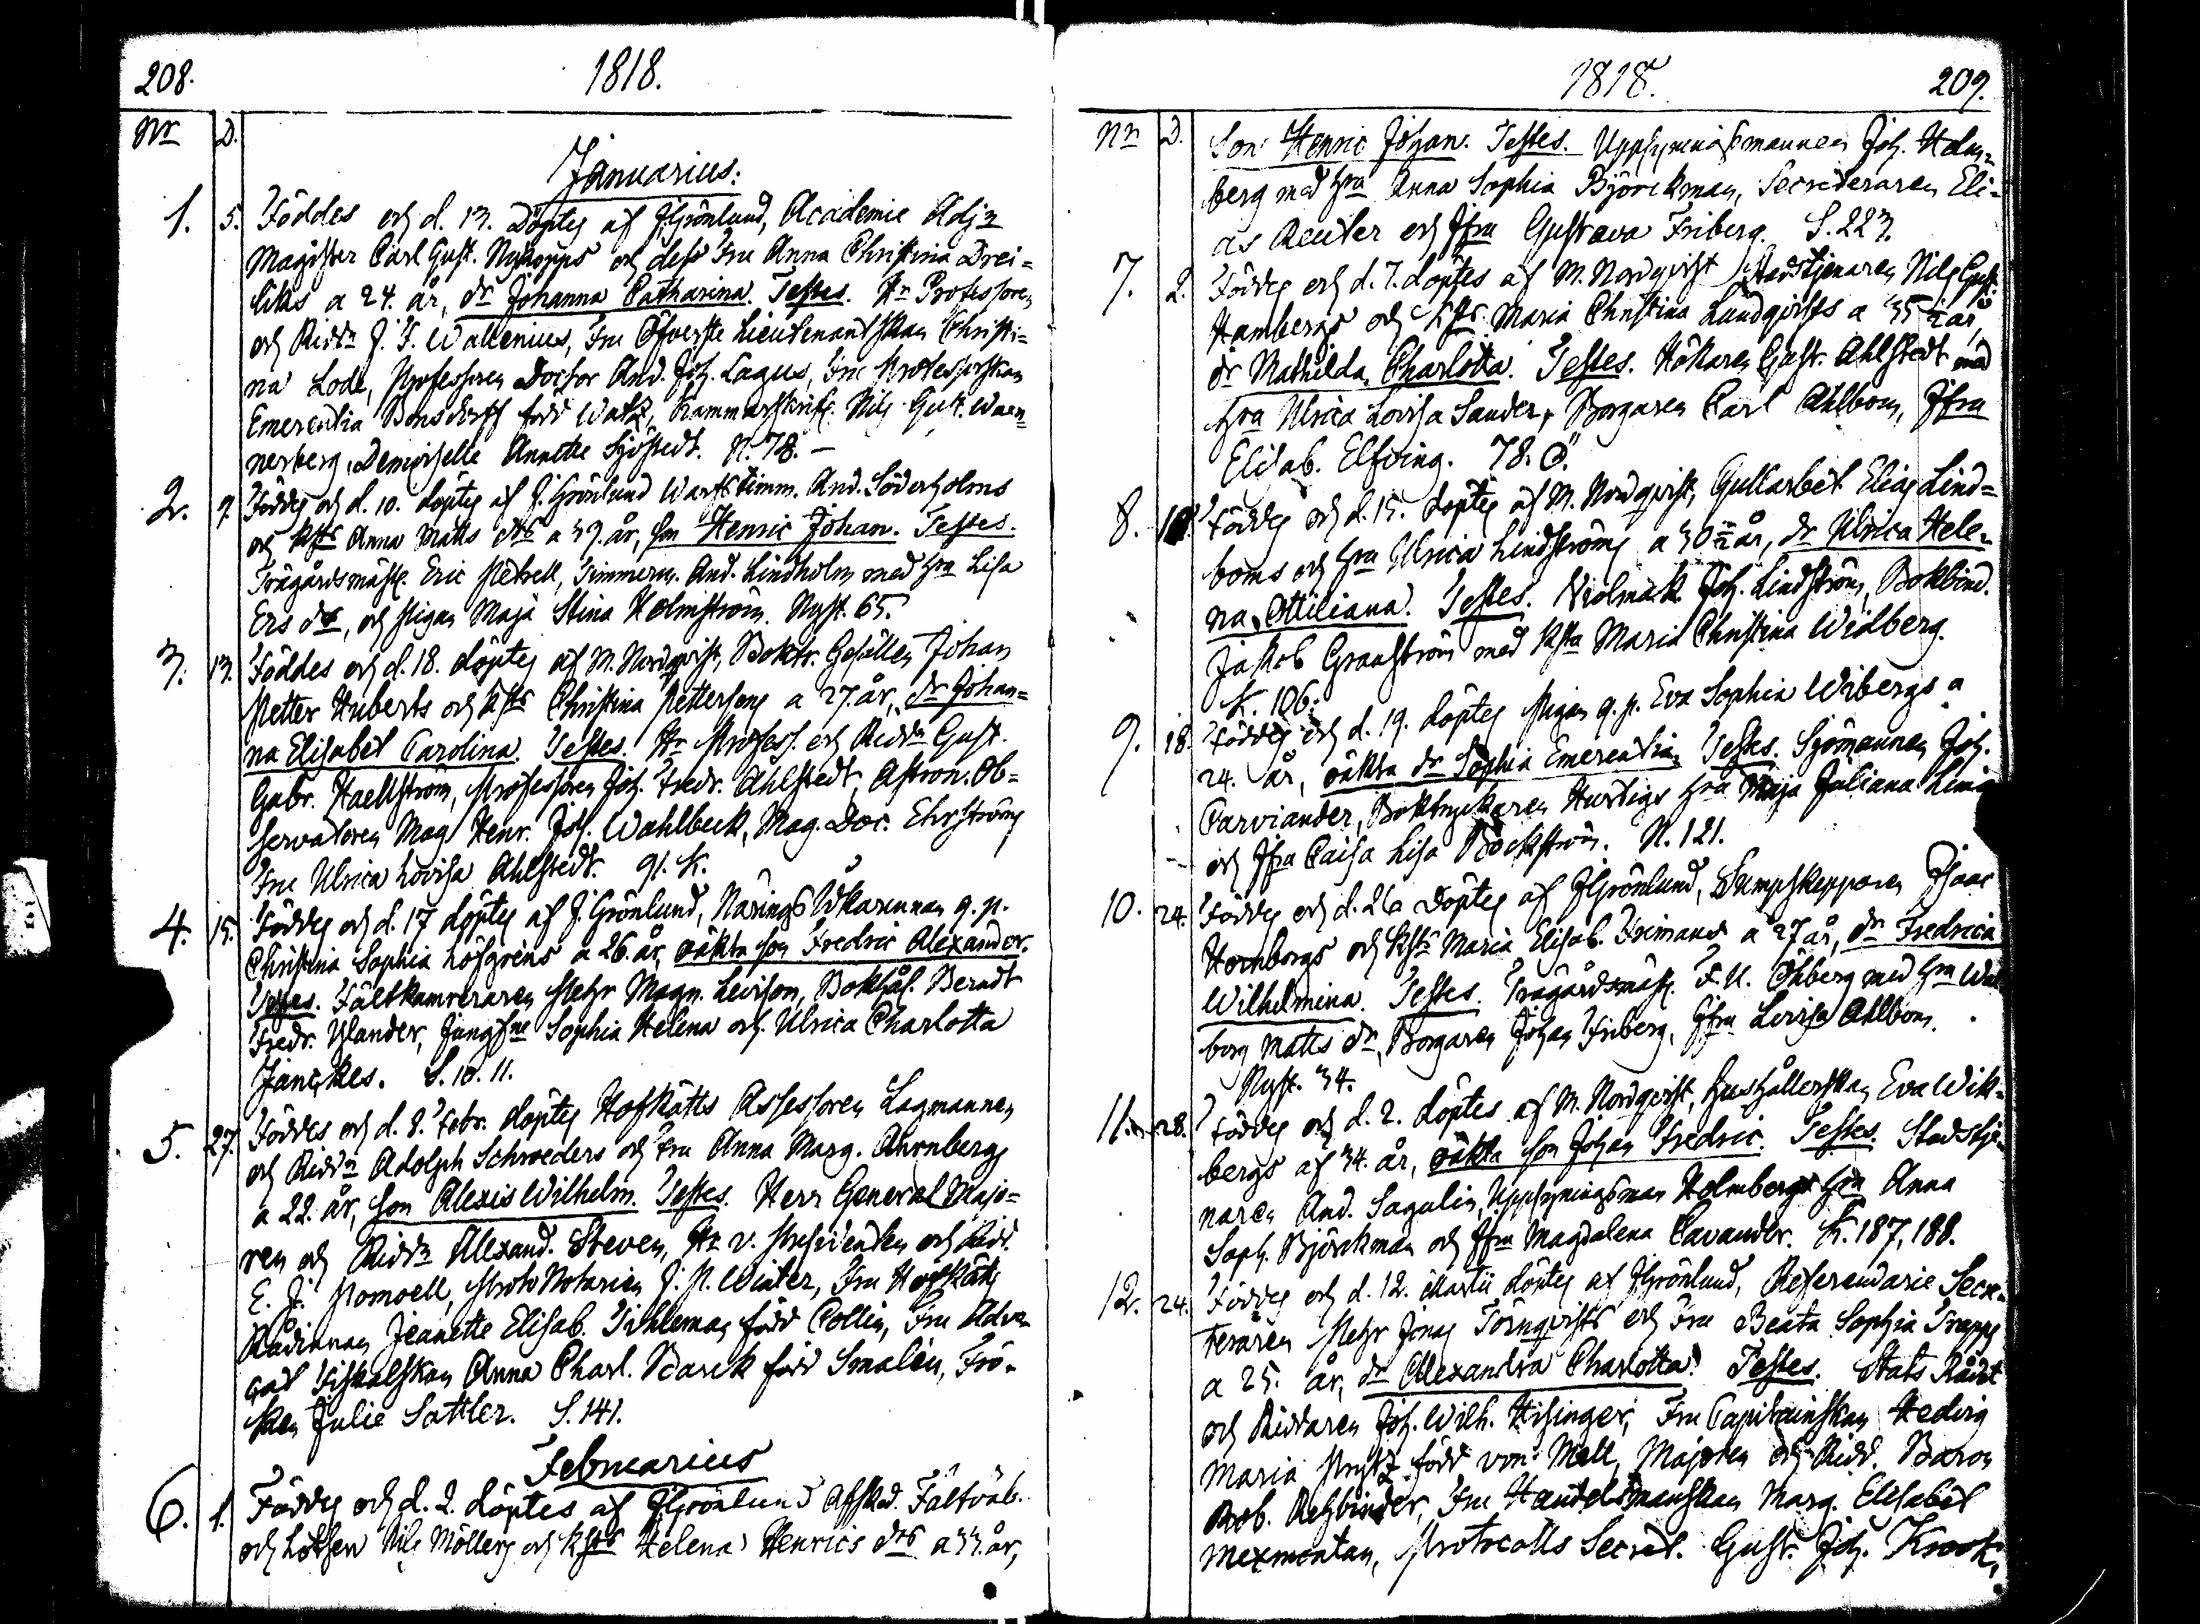 208.
1818.
Nr D.
Januarius.
1. 5. Föddes och d. 13. Döptes af J Grönlund, Academie Adj:n
Magister Carl Gust. Nykopps och dess Fru Anna Christina Drei=
liks a 24. år, dr Johanna Catharina. Testes. Hr Professoren
och Ridd:n J. F. Wallenius, Fru Öfverste Lieutenantskan Christi=
na Lode, Professoren Doctor And. Joh. Lagus, Fru Professorskan
Emerentia Bonsdorff född Watz, Kammarskrifv. Nils Gust. Waen=
nerberg, Demoiselle Annette Sjöstedt. N. 78. –
2. 9. Föddes och d. 10. döptes af J. Grönlund Warfs timm. And. Söderholms
och hsts Anna Matts drs a 39. år, son Henric Johan. Testes.
Trägårdsmäst. Eric Petrell, Timmerm. And. Lindholm med hra Lisa
Ers dr, och pigan Maja Stina Holmström. Nyst. 65.
3. 13. Föddes och d. 18. döptes af M. Nordqvist, Boktr. Gesällen Johan
Petter Huberts och hsts Christina Pettersons a 27. år, dr Johan=
na Elisabet Carolina. Testes. Hr Profess. och Ridd:n Gust.
Gabr. Haellström, Professoren Joh. Fredr. Ahlstedt, Astron. Ob=
servatoren Mag. Henr. Joh. Wahlbeck, Mag. Doc. Ehrström
Fru Ulrica Lovisa Ahlstedt. 91. K.
4. 15. Föddes och d. 17 döptes af J. Grönlund, Närings Idkarinnan q. p.
Christina Sophia Löfgrens a 26. år, oäkta son Fredric Alexander.
Testes. Fältkamreraren Petr Magn. Levison, Bokhål. Berndt
Fredr. Ylander, Jungfne Sophia Helena och Ulrica Charlotta
Jänckes. S. 10. 11.
5. 27. Föddes och d. 8. Febr. döptes Hofrätts Assessoren Lagmannen
och Ridd:n Adolph Schroeders och Fru Anna Marg. Ahrnbergs
a 22. år, son Alexis Wilhelm. Testes. Herr General Majo=
ren och Ridd:n Alexand. Steven, Hr v. Presidenten och Ridd.
E. J. Pomoell, Proto Notarien J. P. Winter, Fru Hofrätts
Rådinnan Jeanette Elisab. Tihleman född Collin, Fru Advo=
cat Fiskalskan Anna Charl. Barck född Smalén, Frö=
ken Julie Sattler. S. 141.
Februarius
6. 1. Föddes och d. 2. döptes af J Grönlund Afsked. Fältväb.
och Lotsen Nils Möllers och hsts Helena Henrics drs a 33. år,
1818. 209.
Nr D. Son Henric Johan. Testes. Uppsyningsmannen Joh. Holm=
berg med hra Anna Sophia Björckman, Secreteraren Eli=
as Reuter och Jfru Gustava Friberg. S. 223.
7. 2. Föddes och d. 7. döptes af M. Nordqvist Stadstjenaren Nils Gust.
Hambergs och hsts Maria Christina Lundqvists a 35 ½ år,
dr Mathilda Charlotta. Testes. Hökaren Gust. Ahlstedt med
hra Ulrica Lovisa Sander, Borgaren Carl Ahlbom, Jfru
Elisab. Elfving. 78. Ö.
8. 10. Föddes och d. 15. döptes af M. Nordqvist, Gullarbet. Elias Lind=
boms och hra Ulrica Lindströms a 30 ½ år, dr Ulrica Hele=
na Ottiliana. Testes. Violmak. Joh. Lindström, Bokbind.
Jakob Granström med hsta Maria Christina Widberg.
K. 106.
9. 18. Föddes och d. 19. döptes Pigan q. p. Eva Sophia Wibergs a
24. år, oäkta dr Sophia Emerentia. Testes. Sjömannen Joh.
Carviander, Boktryckaren Hurtigs hra Maja Juliana
och Jfru Caisa Lisa Böckström. N. 121.
10. 24. Föddes och d. 26 Döptes af J Grönlund, Sumpskepparen Isaac
Hornborgs och hsts Maria Elisab. Frimans a 27 år, dr Fredrica
Wilhelmina. Testes. Trägårdsmäst. F. U. Öhberg med hra
borg Matts dr, Borgaren Johan Friberg, Jfru Lovisa Ahlbom.
Nyst. 34.
11. 28. Föddes och d. 2. döptes af M. Nordqvist, hushållerskan Eva Wik=
bergs af 34. år, oäkta son Johan Fredric. Testes. Stadstje=
naren And. Sagulin, Uppsyningsman Holmbergs hra Anna
Soph. Björckman och Jfru Magdalena Cavander. K. 187, 188.
12. 24. Föddes och d. 12. Martii döptes af J Grönlund, Referendarie Secre=
teraren Petr Jonas Törnqvists och Fru Beata Sophia Trapps
a 25. år, dr Alexandra Charlotta. Testes. Stats Rådet
och Riddaren Joh. Wilh. Hisinger, Fru Capitainskan Hedvig
Maria Prytz född von Mell, Majoren och Ridd. Baron
Rob. Rehbinder, Fru Handelsmanskan Marg. Elisabet
Mexmontan, Protocolls Secret. Gust. Joh. Krook,